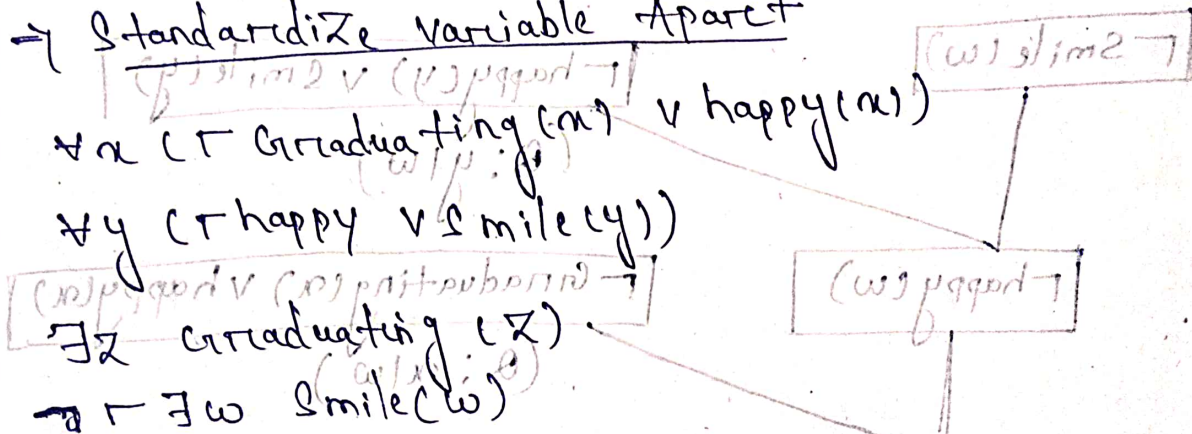 → Standardize variable Apart
∀x (¬ Graduating(x) ∨ happy(x))
∀y (¬ happy ∨ Smile(y))
∃z Graduating (z)
¬ ∃w Smile(w)